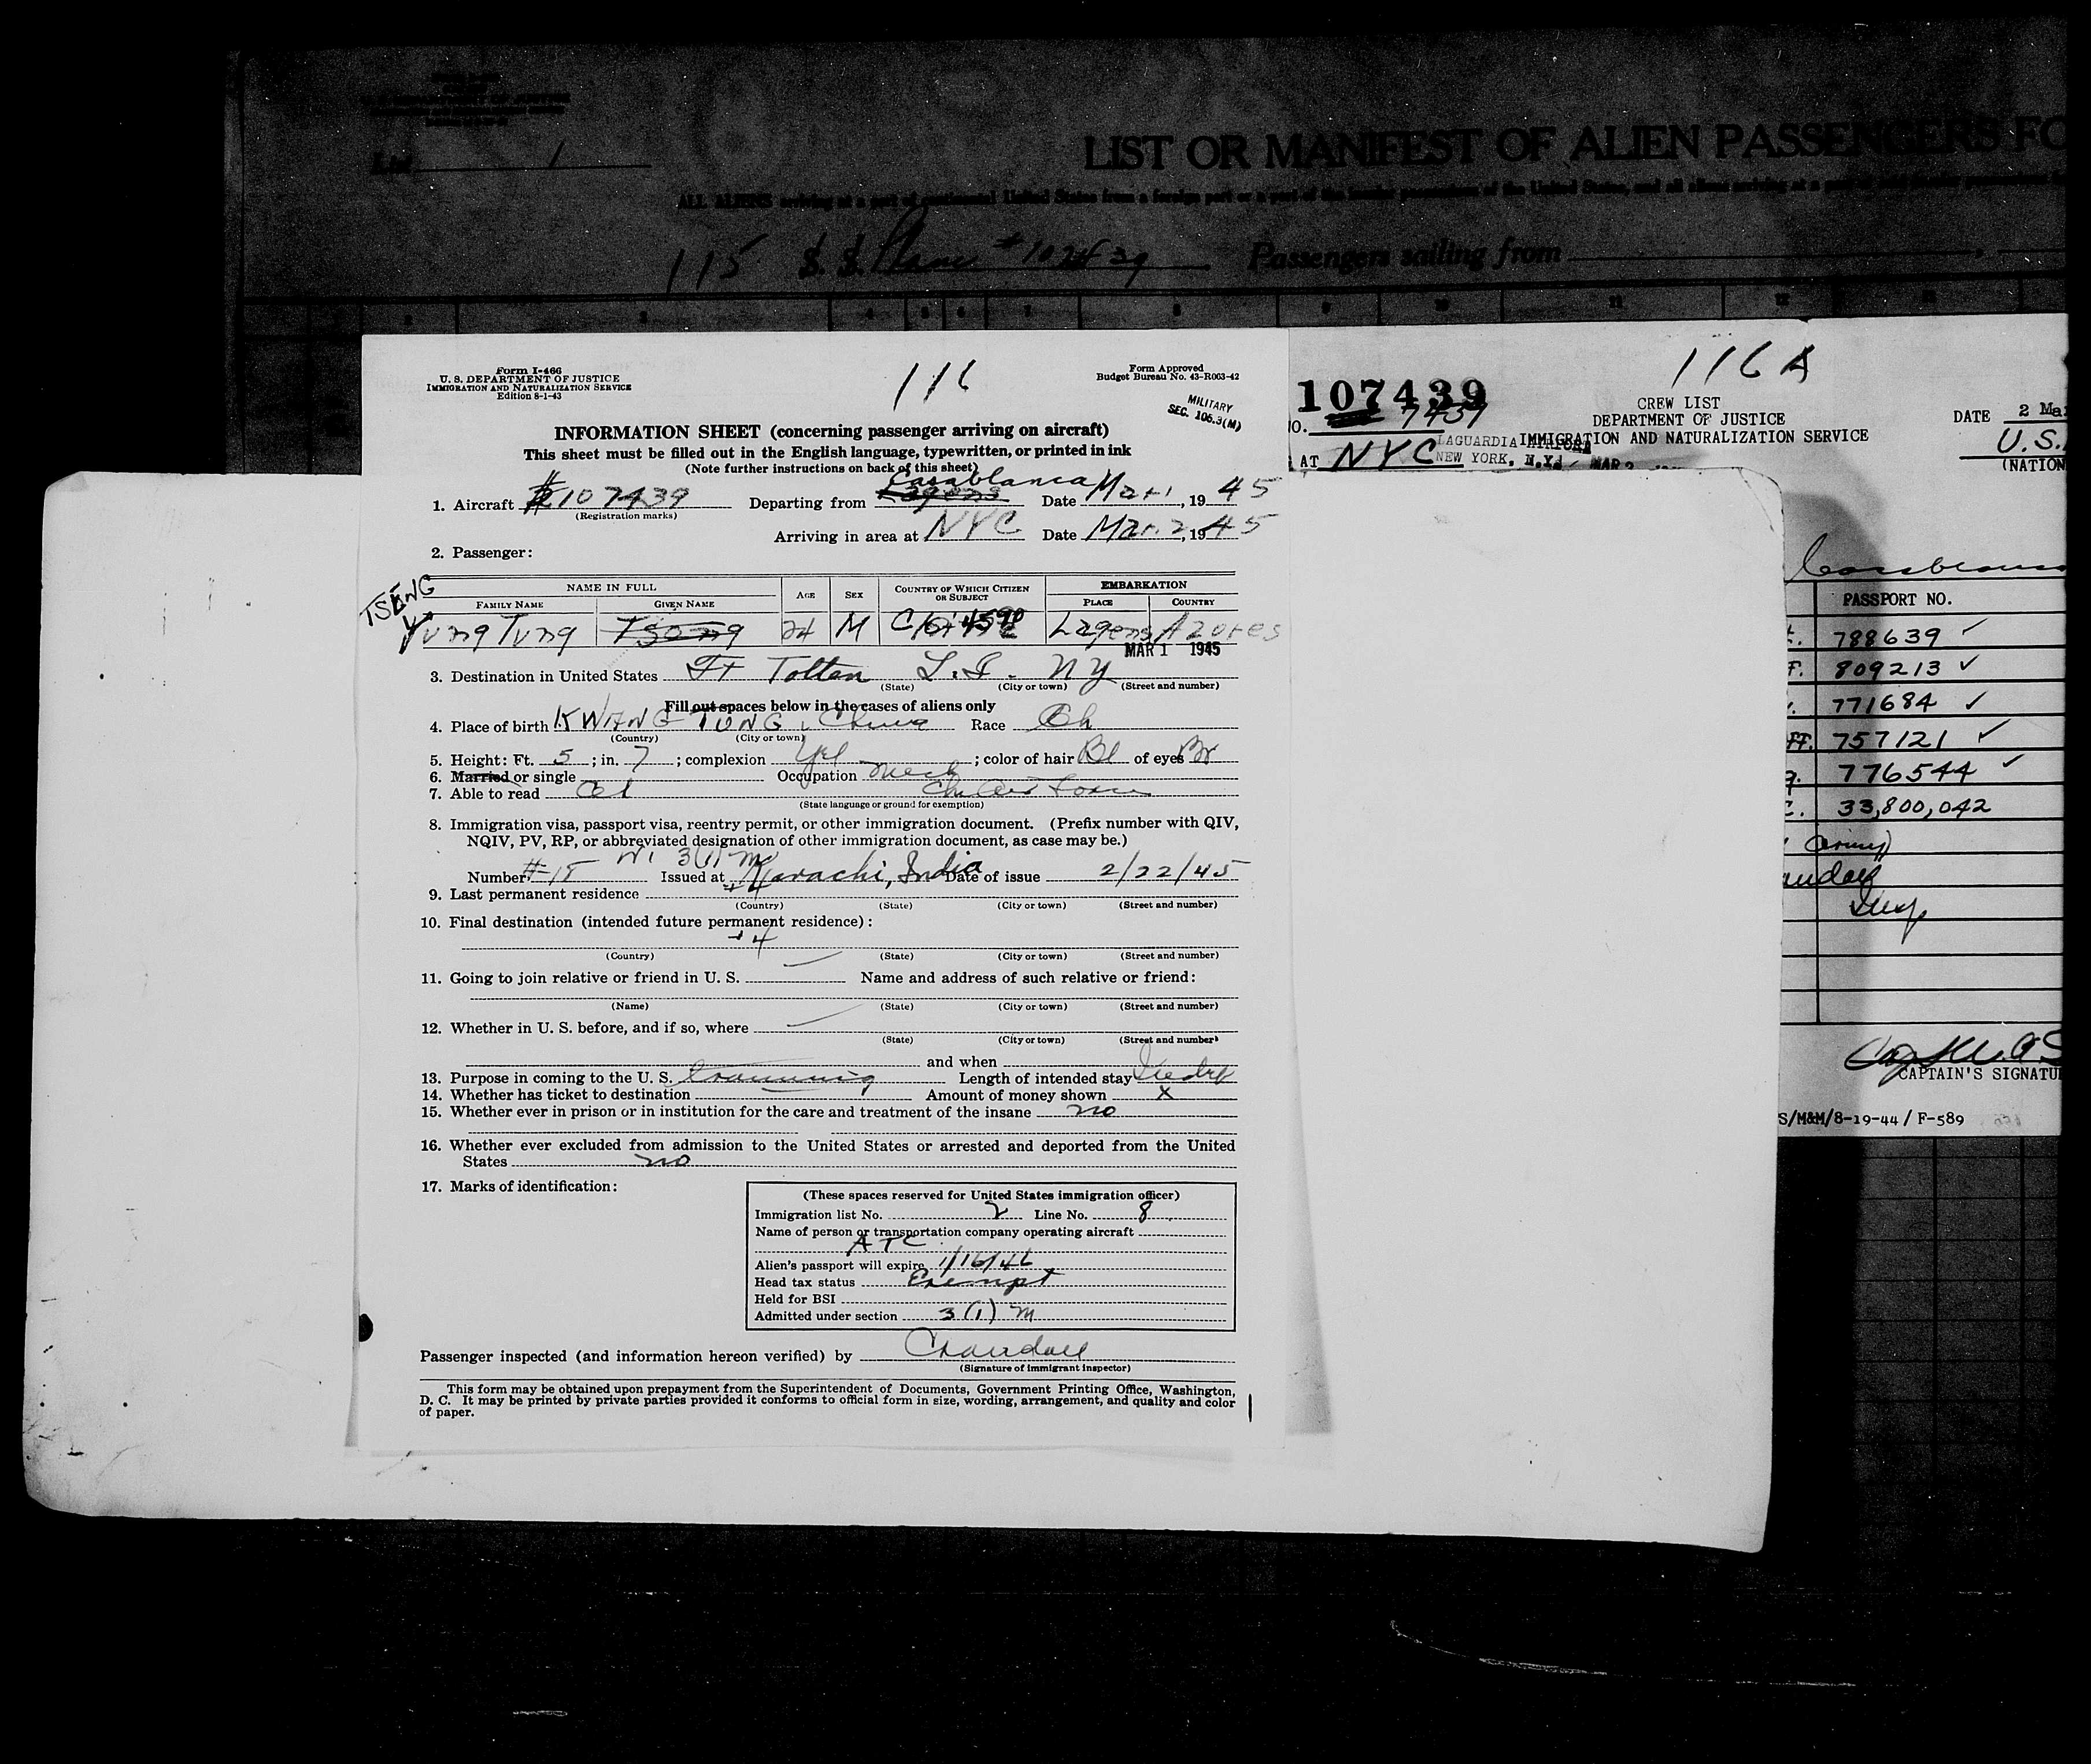 List 1
LIST OR MANIFEST OF ALIEN PASSENGERS FO
ALL ALIENS arriving at a port of continental United States from a foreign port or a port of the insular possessions of the United States, and all aliens arriving at a port of said insular possessions
115 S. S. Plane #107439 Passengers sailing from
Form I-466
U. S. DEPARTMENT OF JUSTICE
IMMIGRATION AND NATURALIZATION SERVICE
Edition 8-1-43
116
Form Approved
Budget Bureau No. 43-R063-42
MILITARY
SEC. 106.3(M)
INFORMATION SHEET (concerning passenger arriving on aircraft)
This sheet must be filled out in the English language, typewritten, or printed in ink
(Note further instructions on back of this sheet)
Casablanca
1. Aircraft #107439 Departing from Lagens Date Mar 1, 1945
(Registration marks)
Arriving in area at NYC Date Mar. 2, 1945
2. Passenger:
NAME IN FULL AGE SEX COUNTRY OF WHICH CITIZEN OR SUBJECT EMBARKATION
FAMILY NAME GIVEN NAME PLACE COUNTRY
TSENG
Yung Tung Tseng 24 M China Lagens Azores
MAR 1 1945
3. Destination in United States Ft Totten L.I. NY
(State) (City or town) (Street and number)
Fill out spaces below in the cases of aliens only
4. Place of birth KWANG TUNG, China Race Ch
(Country) (City or town)
5. Height: Ft. 5; in. 7; complexion Yel; color of hair Bl of eyes Br
6. Married or single Occupation Mech
7. Able to read Ch Air Force
(State language or ground for exemption)
8. Immigration visa, passport visa, reentry permit, or other immigration document. (Prefix number with QIV,
NQIV, PV, RP, or abbreviated designation of other immigration document, as case may be.)
3(1) m
Number #-18 Issued at Karachi, India Date of issue 2/22/45
9. Last permanent residence
(Country) (State) (City or town) (Street and number)
10. Final destination (intended future permanent residence):
(Country) (State) (City or town) (Street and number)
11. Going to join relative or friend in U. S. Name and address of such relative or friend:
(Name) (State) (City or town) (Street and number)
12. Whether in U. S. before, and if so, where
(State) (City or town) (Street and number)
and when
13. Purpose in coming to the U. S. training Length of intended stay
14. Whether has ticket to destination Amount of money shown X
15. Whether ever in prison or in institution for the care and treatment of the insane no
16. Whether ever excluded from admission to the United States or arrested and deported from the United
States no
17. Marks of identification:
(These spaces reserved for United States immigration officer)
Immigration list No. 2 Line No. 8
Name of person or transportation company operating aircraft
ATC
Alien's passport will expire 1/16/46
Head tax status Exempt
Held for BSI
Admitted under section 3 (1) m
Passenger inspected (and information hereon verified) by Crandall
(Signature of immigrant inspector)
This form may be obtained upon prepayment from the Superintendent of Documents, Government Printing Office, Washington,
D. C. It may be printed by private parties provided it conforms to official form in size, wording, arrangement, and quality and color
of paper.
116 A
107439
NO. 7439
CREW LIST
DEPARTMENT OF JUSTICE
IMMIGRATION AND NATURALIZATION SERVICE
DATE 2 Mar
U.S.
(NATION
AT NYC
LAGUARDIA AIRPORT
NEW YORK, N.Y. MAR 2
Casablanca
PASSPORT NO.
788639 ✓
809213 ✓
771684 ✓
757121 ✓
776544 ✓
33,800,042
Army)
Insp.
CAPTAIN'S SIGNATU
S/M&M/8-19-44 / F-589